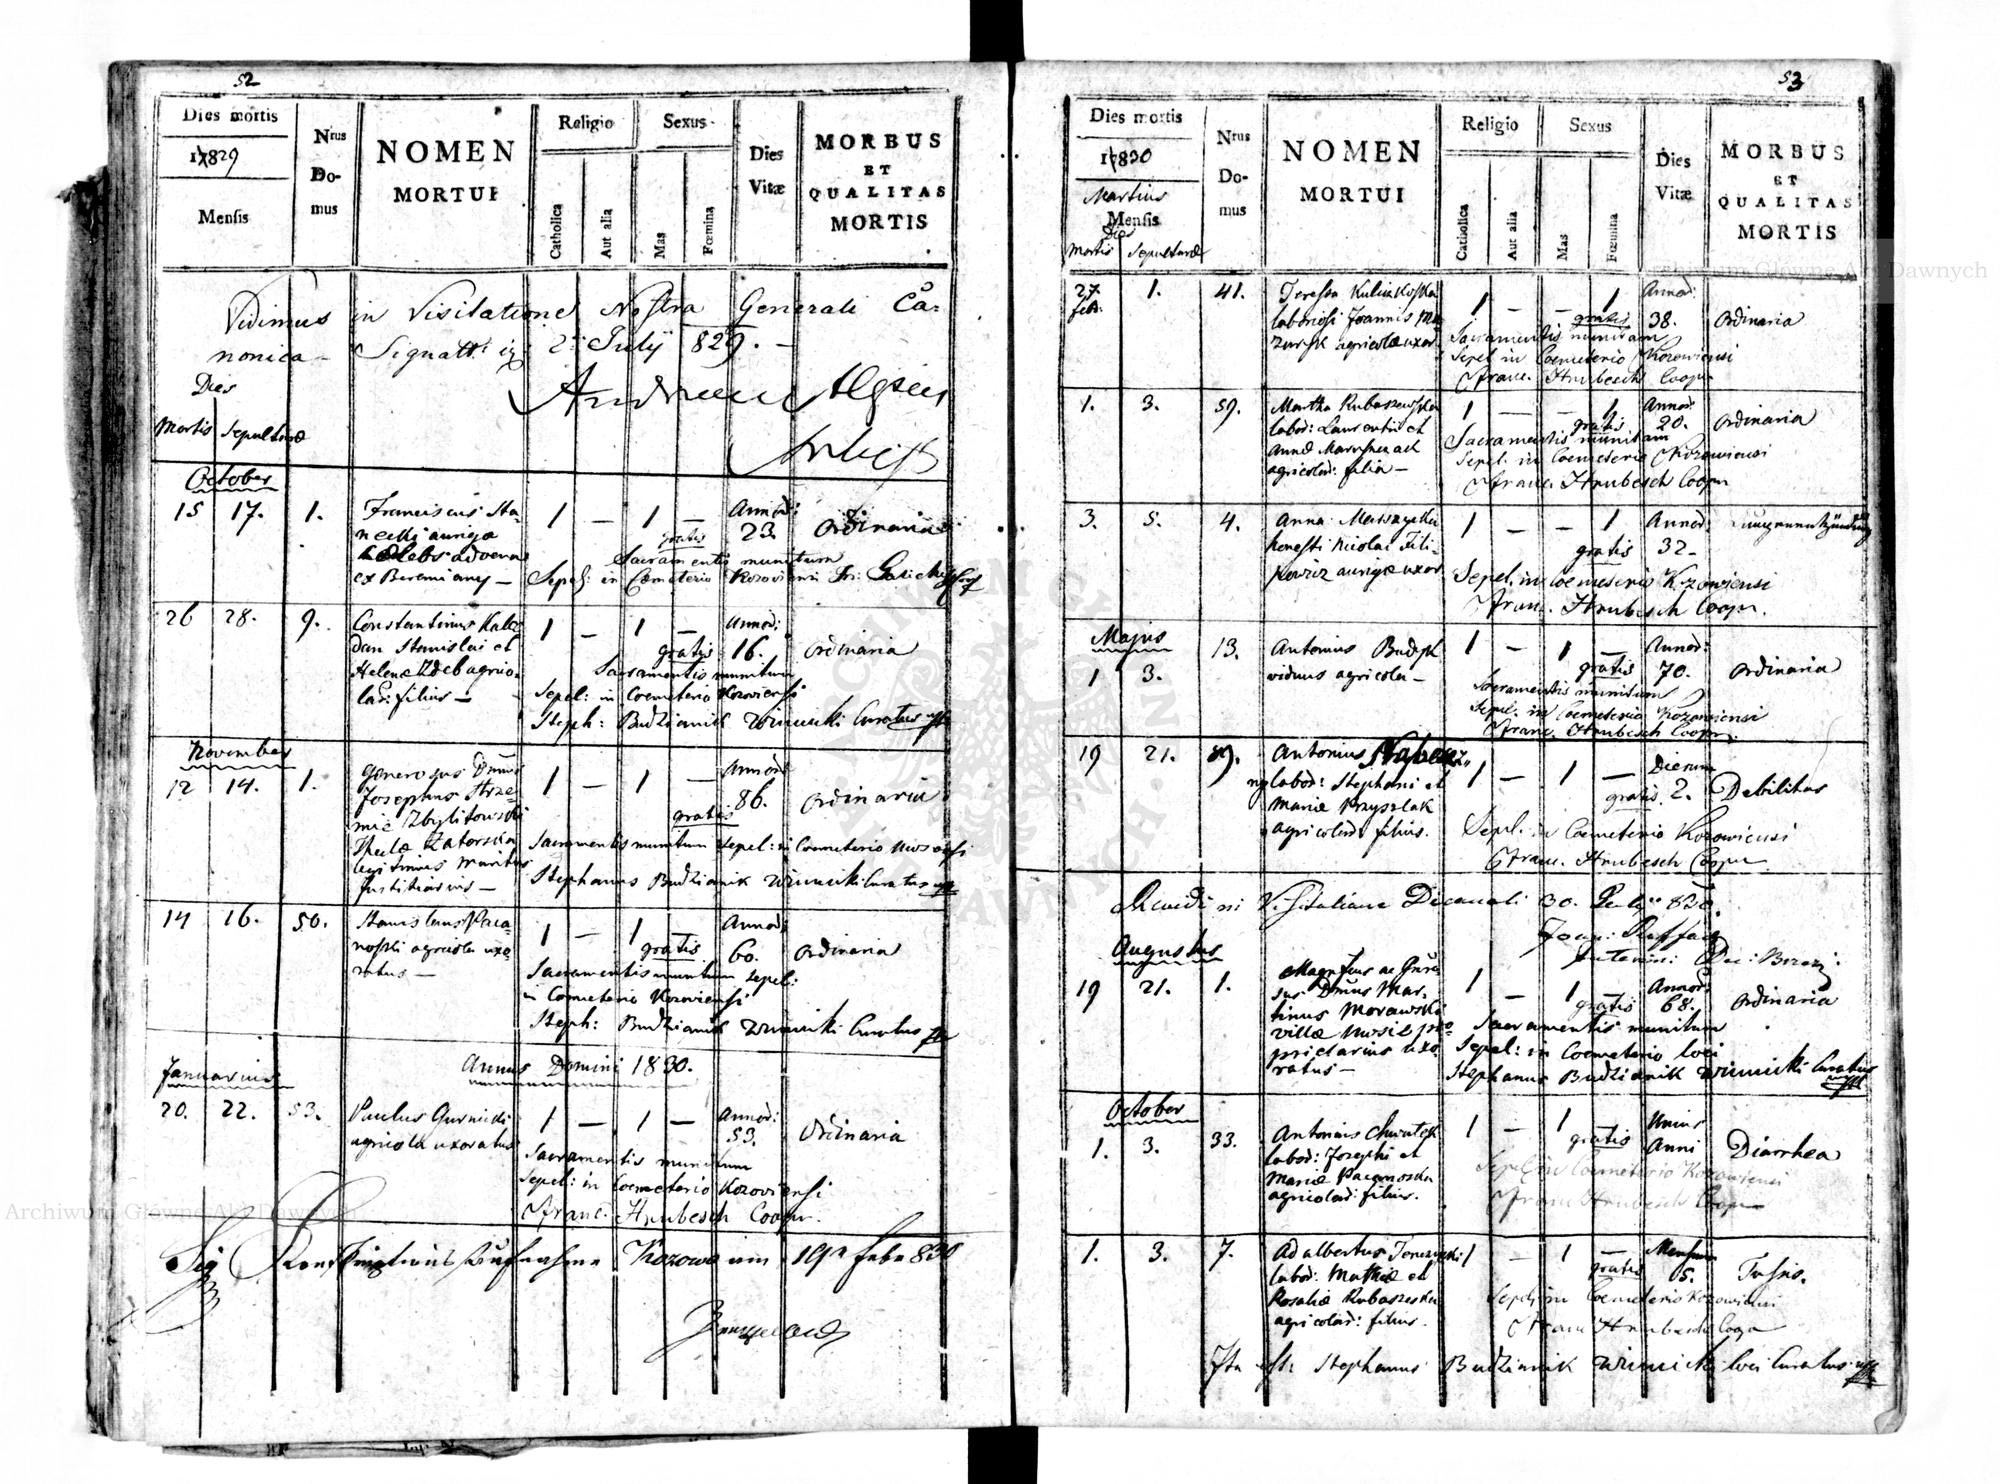 52
Dies mortis
17829
Mensis
Nrus
Do-
mus
NOMEN
MORTUI
Religio
Catholica
Aut alia
Sexus
Mas
Fœmina
Dies
Vitæ
MORBUS
ET
QUALITAS
MORTIS
Vidimus in Visitatione Nostra Generali Ca-
nonica Signatt: 2 July 829.
Dies
Mortis Sepulturæ
October
15 17. 1.
Franciscus Sta-
necki auriga
advena
ex Beremiany
1 — 1 —
gratis
Annor:
23.
Ordinaria
Sacramentis munitum
Sepel: in Cœmeterio Kozoviensi
26 28. 9.
Constantinus
Stanislai et
Helenæ agrico-
lar: filius —
1 — 1 —
gratis
Annor:
16.
Ordinaria
Sacramentis munitum
Sepel: in Coemeterio Kozoviensi
Steph: Budzianik Winnicki Curatus
November
12 14. 1.
Generosus Dnus
Josephus Strze-
mie Zbylitowski
Theclæ Zatorska
legitimus maritus
Justitiarius —
1 — 1 —
gratis
Annor:
86.
Ordinaria
Sacramentis munitum sepel: in Cœmeterio
Stephanus Budzianik Winnicki Curatus
14 16. 50.
Stanislaus Paca-
noski agricola uxo
ratus —
1 — 1
gratis
Annor:
60.
Ordinaria
Sacramentis munitum sepel:
in Cœmeterio Kozoviensi
Steph: Budzianik Winnicki Curatus
Januarius
Annus Domini 1830.
20. 22. 53.
Paulus Gurnicki
agricola uxoratus
1 — 1 —
Annor:
53.
Ordinaria
Sacramentis munitum
Sepel: in Coemeterio Kozoviensi
Franc. Hrubesch Coopr.
Kozowa am 19n Febr 830
53
Dies mortis
17830
Martius
Mensis
Dies
Mortis Sepulturæ
Nrus
Do-
mus
NOMEN
MORTUI
Religio
Catholica
Aut alia
Sexus
Mas
Fœmina
Dies
Vitæ
MORBUS
ET
QUALITAS
MORTIS
27.
febr.
1. 41.
Teressa
laboriosi Joannis Ma
zurek agricolæ uxor
1 — — 1
gratis
Annor:
38.
Ordinaria
Sacramentis munitam
Sepel in Coemeterio Kozowiensi
Franc. Hrubesch Coopr
1. 3. 59.
Martha Rubaszewska
labor: Laurentii et
Annæ
agricolar: filia —
1 — — 1
gratis
Annor:
20.
Ordinaria
Sacramentis munitam
Sepel. in Coemeterio Kozowiensi
Franc. Hrubesch Coopr
3. 5. 4.
Anna
honesti Nicolai Fili-
kowicz aurigæ uxor
1 — — 1
gratis
Annor:
32-
Lungenentzündung
Sepel. in Coemeterio Kozowiensi
Franc. Hrubesch Coopr.
Majus
1 3. 13.
Antonius Budyk
viduus agricola —
1 — 1 —
gratis
Annor:
70.
Ordinaria
Sacramentis munitum
Sepel. in Coemeterio Kozowiensi
Franc. Hrubesch Coopr.
19 21. 89.
Antonius
labor: Stephani et
Mariæ Krzyszlak
agricolar: filius.
1 — 1 —
gratis
Dierum
2.
Debilitas
Sepel. in Coemeterio Kozowiensi
Franc. Hrubesch Coopr
Visitatione Decanali 30. 830.
Augustus
19 21. 1.
Magnificus ac Gnero
sus Dnus Mar-
tinus Morawski
villæ pro-
prietarius uxo
ratus —
1 — 1 —
gratis
Annor:
68.
Ordinaria
Sacramentis munitum
Sepel: in Coemeterio loci
Stephanus Budzianik Winnicki Curatus
October
1. 3. 33.
Antonius
labor: Josephi et
Mariæ Pacanoska
agricolar: filius.
1 — 1
gratis
Unius
Anni
Diarrhea
Sepel in Coemeterio Kozowiensi
Franc Hrubesch Coopr
1. 3. 7.
Adalbertus
labor: Mathiæ et
Rosaliæ Rubaszeska
agricolar: filius.
1 — 1 —
gratis
Mensium
5.
Tussis.
Sepel in Coemeterio Kozowiensi
Franc Hrubesch Coopr
Ita est: Stephanus Budzianik Winnicki loci Curatus
Archiwum Główne Akt Dawnych
Archiwum Główne Akt Dawnych
ARCHIWUM GŁÓWNE AKT DAWNYCH